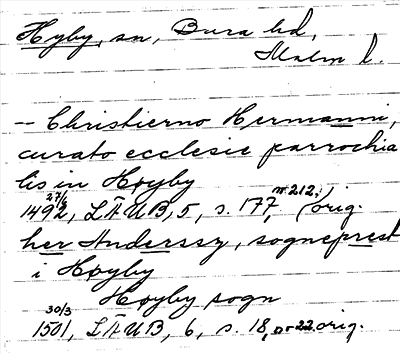 Hyby, sn, Bara hd,
Malm l.
-- Christierno Hermanni,
curato ecclesie parrochia
lis in Høyby
27/6 1492, LÄUB, 5, s. 177, nr 212, (orig.
her Anderssz, sogneprest
i Høyby
Høyby sogn
30/3 1501, LÄUB, 6, s. 18, nr 22 orig.